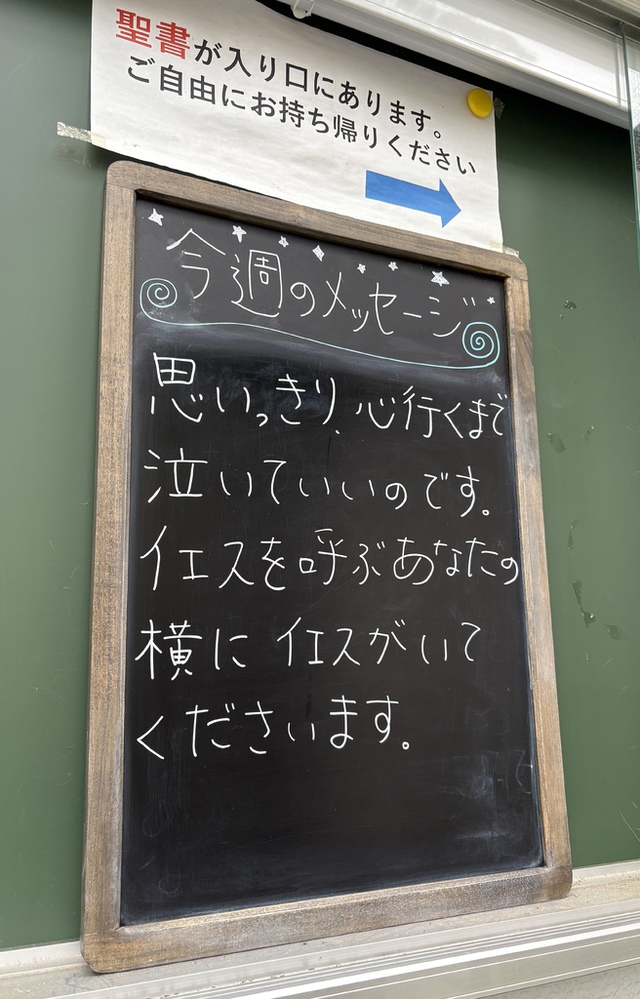 聖書が入り口にあります。
ご自由にお持ち帰りください
今週のメッセージ
思いっきり、心行くまで
泣いていいのです。
イエスを呼ぶあなたの
横にイエスがいて
くださいます。